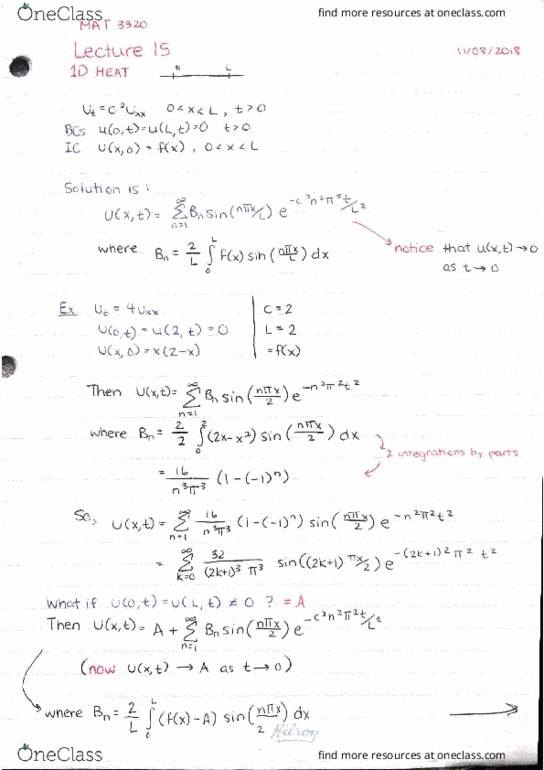 OneClass find more resources at oneclass.com
MAT 3320
Lecture 15 11/08/2018
1D HEAT 0 L
Ut = c²Uxx 0<x<L, t>0
BCs u(0,t)=u(L,t)=0 t>0
IC U(x,0) = f(x), 0<x<L
Solution is:
U(x,t) = ∞Σn=1 Bn sin(nπx/L) e^-c²n²π²t/L²
where Bn = 2/L ∫0^L f(x) sin(nπx/L) dx
notice that u(x,t)→0
as t→0
Ex Ut = 4Uxx C=2
U(0,t) = u(2,t) = 0 L=2
U(x,0) = x(2-x) =f(x)
Then U(x,t) = ∞Σn=1 Bn sin(nπx/2) e^-n²π²t²
where Bn = 2/2 ∫0^2 (2x-x²) sin(nπx/2) dx
2 integrations by parts
= 16/n³π³ (1-(-1)ⁿ)
So, U(x,t) = ∞Σn=1 16/n³π³ (1-(-1)ⁿ) sin(nπx/2) e^-n²π²t²
= ∞Σk=0 32/(2k+1)³π³ sin((2k+1)πx/2) e^-(2k+1)²π²t²
What if U(0,t)=U(L,t) ≠ 0 ? = A
Then U(x,t) = A + ∞Σn=1 Bn sin(nπx/2) e^-c²n²π²t/L²
(now U(x,t) → A as t→0)
where Bn = 2/L ∫0^L (f(x)-A) sin(nπx/2) dx
Hilroy
OneClass find more resources at oneclass.com